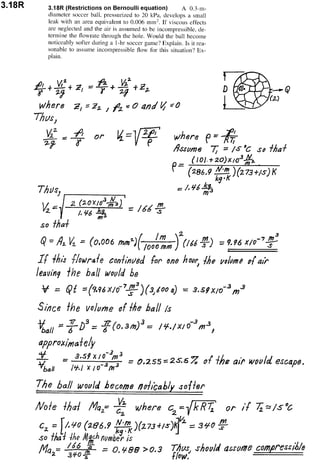 3.18R
3.18R (Restrictions on Bernoulli equation) A 0.3-m-
diameter soccer ball, pressurized to 20 kPa, develops a small
leak with an area equivalent to 0.006 mm². If viscous effects
are neglected and the air is assumed to be incompressible, de-
termine the flowrate through the hole. Would the ball become
noticeably softer during a 1-hr soccer game? Explain. Is it rea-
sonable to assume incompressible flow for this situation? Ex-
plain.
p₁/γ + V₁²/2g + z₁ = p₂/γ + V₂²/2g + z₂
D (1) Q
(2)
where z₁ = z₂ , p₂ = 0 and V₁ = 0
Thus,
V₂²/2g = p₁/γ or V₂ = √(2p₁/ρ) where ρ = p₁/RT₁
Assume T₁ = 15°C so that
ρ = (101+20)x10³ N/m² / (286.9 N·m/kg·K)(273+15)K
= 1.46 kg/m³
Thus,
V₂ = √(2 (20x10³ N/m²) / 1.46 kg/m³) = 166 m/s
so that
Q = A₂ V₂ = (0.006 mm²)(1 m/1000 mm)² (166 m/s) = 9.96 x10⁻⁷ m³/s
If this flowrate continued for one hour, the volume of air
leaving the ball would be
V = Qt = (9.96 x10⁻⁷ m³/s)(3,600 s) = 3.59 x10⁻³ m³
Since the volume of the ball is
V_ball = π/6 D³ = π/6 (0.3m)³ = 14.1 x10⁻³ m³,
approximately
V/V_ball = 3.59 x10⁻³ m³ / 14.1 x 10⁻³ m³ = 0.255 = 25.5 % of the air would escape.
The ball would become noticably softer
Note that Ma₂ = V₂/c₂ where c₂ = √kRT₂ or if T₂ = 15°C
c₂ = [1.40 (286.9 N·m/kg·K)(273+15)K]^½ = 340 m/s
so that the Mach number is
Ma₂ = 166 m/s / 340 m/s = 0.488 > 0.3 Thus, should assume compressible
flow.